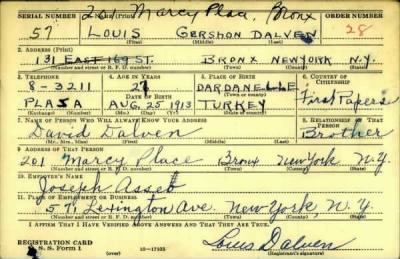 201 Marcy Place, Bronx
SERIAL NUMBER 1. NAME (Print) ORDER NUMBER
57 LOUIS GERSHON DALVEN 28
(First) (Middle) (Last)
2. ADDRESS (Print)
131 EAST 169 ST. BRONX NEW YORK N.Y.
(Number and street or R. F. D. number) (Town) (County) (State)
3. TELEPHONE 4. AGE IN YEARS 5. PLACE OF BIRTH 6. COUNTRY OF CITIZENSHIP
8-3211 27 DARDANELLE First Papers
DATE OF BIRTH (Town or county)
PLAZA AUG. 25 1913 TURKEY
(Exchange) (Number) (Mo.) (Day) (Yr.) (State or country)
7. NAME OF PERSON WHO WILL ALWAYS KNOW YOUR ADDRESS 8. RELATIONSHIP OF THAT PERSON
David Dalven Brother
(Mr., Mrs., Miss) (First) (Middle) (Last)
9. ADDRESS OF THAT PERSON
201 Marcy Place Bronx New York N.Y.
(Number and street or R. F. D. number) (Town) (County) (State)
10. EMPLOYER'S NAME
Joseph
11. PLACE OF EMPLOYMENT OR BUSINESS
571 Lexington Ave. New York, N.Y.
(Number and street or R. F. D. number) (Town) (County) (State)
I AFFIRM THAT I HAVE VERIFIED ABOVE ANSWERS AND THAT THEY ARE TRUE.
REGISTRATION CARD
D. S. S. Form 1 (over) 16-17105 Louis Dalven
(Registrant's signature)